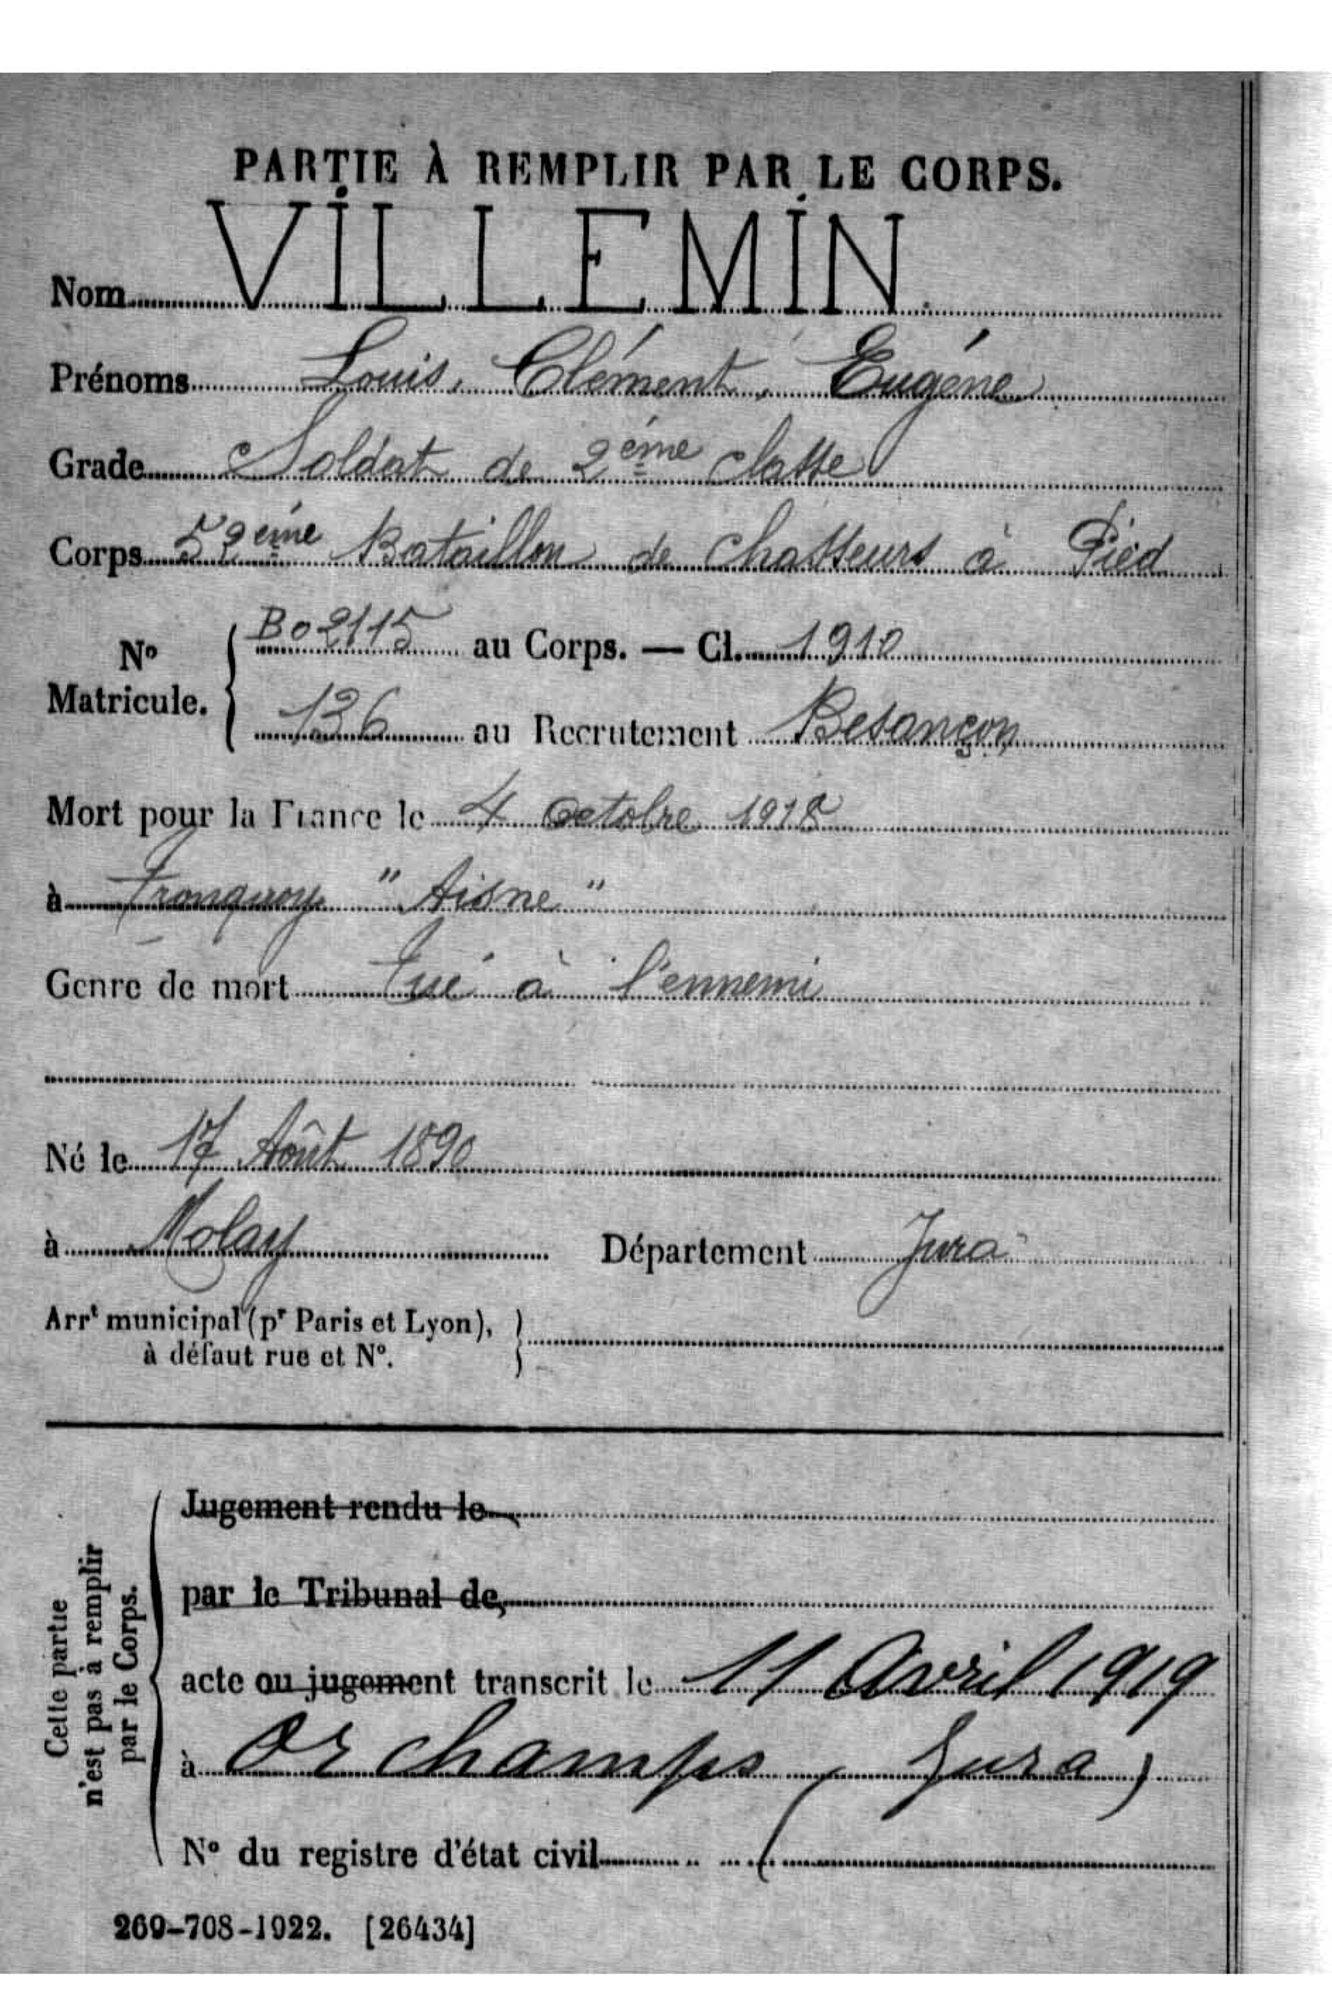 PARTIE À REMPLIR PAR LE CORPS.
Nom VILLEMIN.
Prénoms Louis, Clément, Eugène
Grade Soldat de 2ème classe
Corps 59ème Bataillon de chasseurs à Pied
No Matricule. { Bo 2115 au Corps. — Cl. 1910
136 au Recrutement Besançon
Mort pour la France le 4 octobre 1918
à Tronquoy "Aisne"
Genre de mort Tué à l'ennemi
Né le 17 Août 1890
à Molay Département Jura
Arrt municipal (pr Paris et Lyon),
à défaut rue et N°.
Cette partie
n'est pas à remplir
par le Corps.
Jugement rendu le
par le Tribunal de
acte ou jugement transcrit le 11 Avril 1919
à Orchamps (Jura)
N° du registre d'état civil
269-708-1922. [26434]